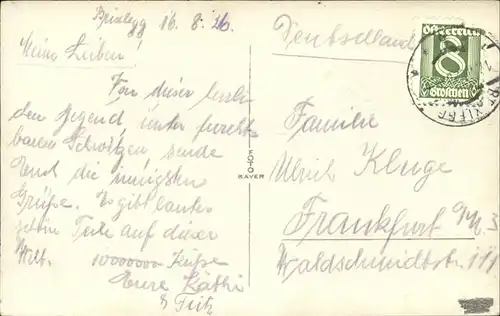 Brixlegg 16. 8. 26.
Meine Lieben!
Von dieser herrli
chen Gegend unter furcht
baren Schwitzen sende
Euch die innigsten
Grüße. Es gibt lauter
Teile auf dieser
Welt. 10000000 Küße
Eure Käthi
& Fritz
FOTO
BAYER
Deutschland
Österreich
8
Groschen
Familie
Ulrich Kluge
Frankfurt a/M. S
Waldschmidtstr. 111